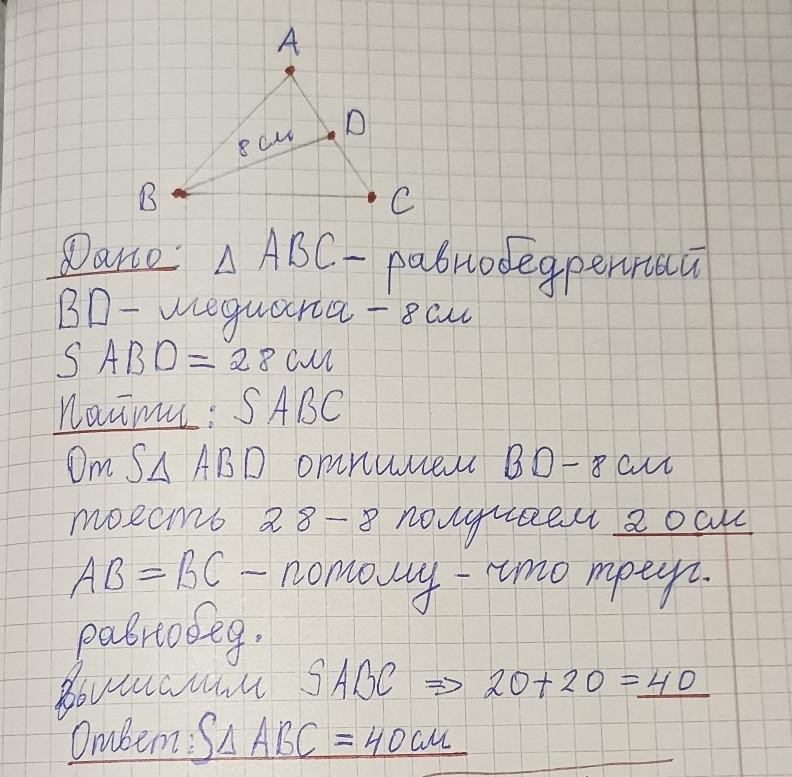 A
8 см
D
B
C
Дано: Δ ABC - равнобедренный
BD - медиана - 8 см
S ABD = 28 см
Найти: S ABC
От SΔ ABD отнимем BD - 8 см
тоесть 28 - 8 получаем 20 см
AB = BC - потому - что треуг.
равнобед.
Вычислим SABC => 20+20 = 40
Ответ: SΔ ABC = 40 см